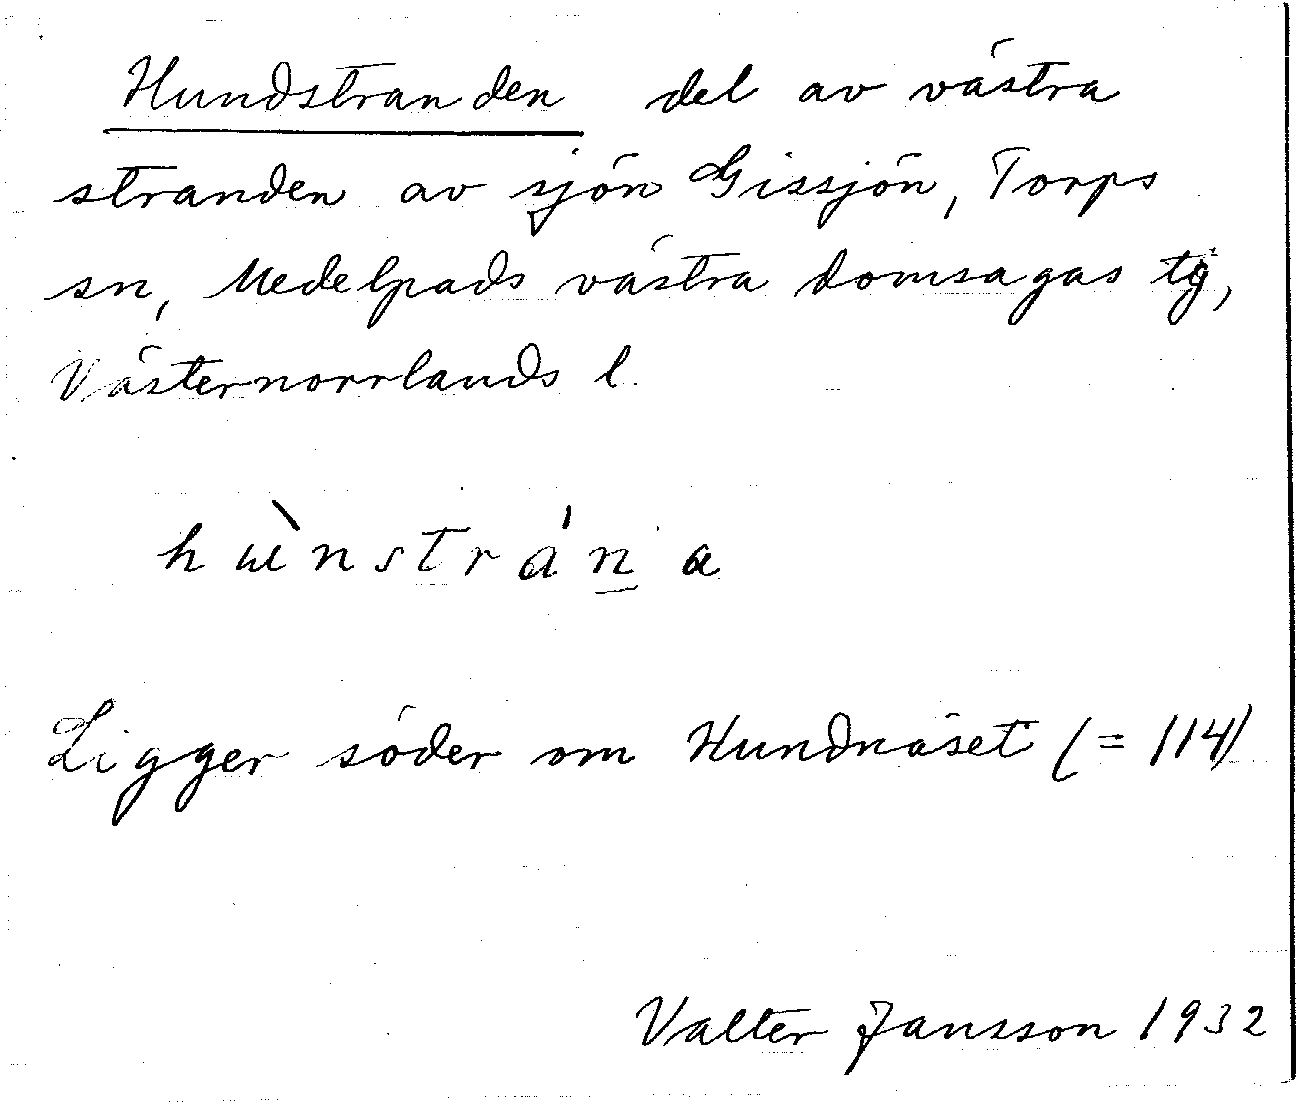 Hundstranden del av västra
stranden av sjön Gissjön, Torps
sn, Medelpads västra domsagas tg,
Västernorrlands l.
hùnstrána
Ligger söder om Hundnäset (= 114)
Valter Jansson 1932